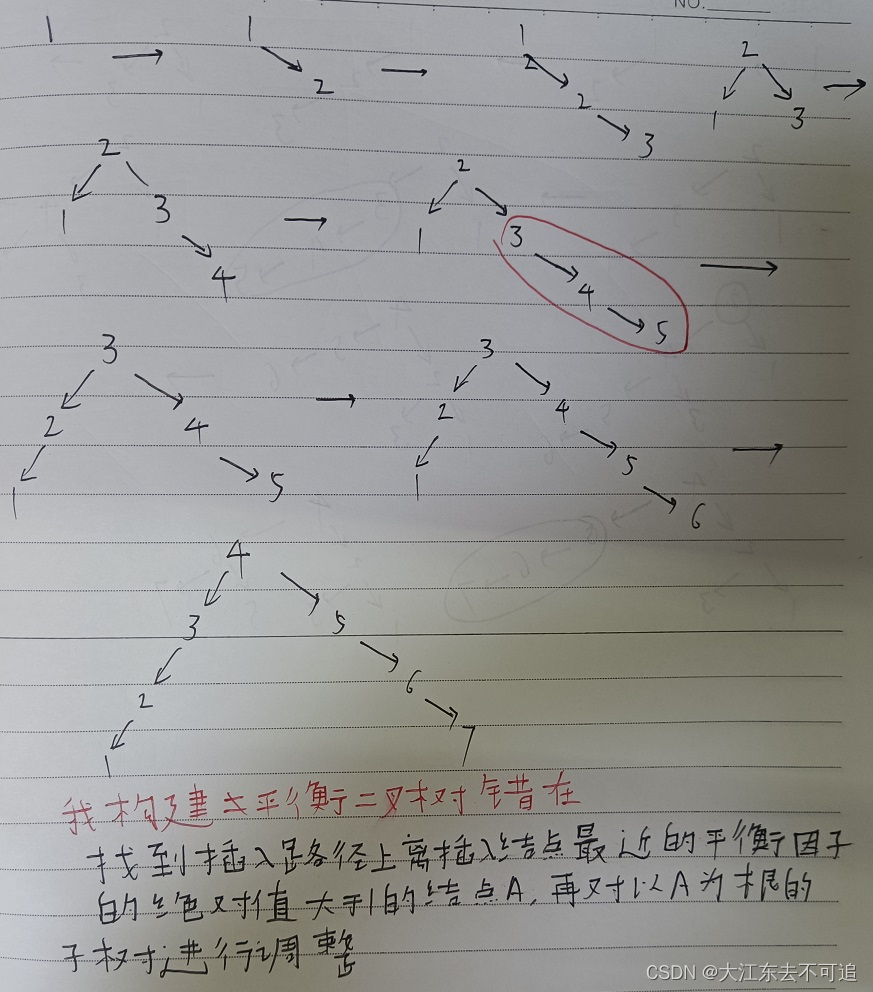 NO.
1 → 1 1 2
2 → 2 1 3 →
3
2 2
1 3 → 1 3
4 4 →
5
3 3
2 4 → 2 4
1 5 1 5 →
6
4
3 5
2 6
1 7
我构建立平衡二叉树错在
找到插入路径上离插入结点最近的平衡因子
的绝对值大于1的结点A,再对以A为根的
子树进行调整
CSDN @大江东去不可追